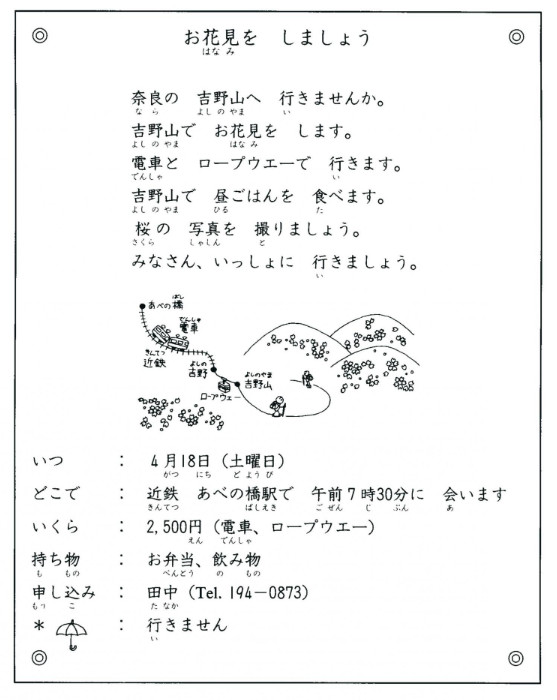 お花見を しましょう
はな み
奈良の 吉野山へ 行きませんか。
な ら よし の やま い
吉野山で お花見を します。
よし の やま はな み
電車と ロープウエーで 行きます。
でんしゃ い
吉野山で 昼ごはんを 食べます。
よし の やま ひる た
桜の 写真を 撮りましょう。
さくら しゃしん と
みなさん、いっしょに 行きましょう。
い
ばし
あべの橋
でんしゃ
電車
きんてつ
近鉄
よしの
吉野
ロープウェー
よしのやま
吉野山
いつ : 4月18日(土曜日)
がつ にち ど よう び
どこで : 近鉄 あべの橋駅で 午前7時30分に 会います
きんてつ ばしえき ご ぜん じ ぷん あ
いくら : 2,500円(電車、ロープウエー)
えん でんしゃ
持ち物 : お弁当、飲み物
も もの べんとう の もの
申し込み : 田中(Tel. 194-0873)
もう こ た なか
* : 行きません
い